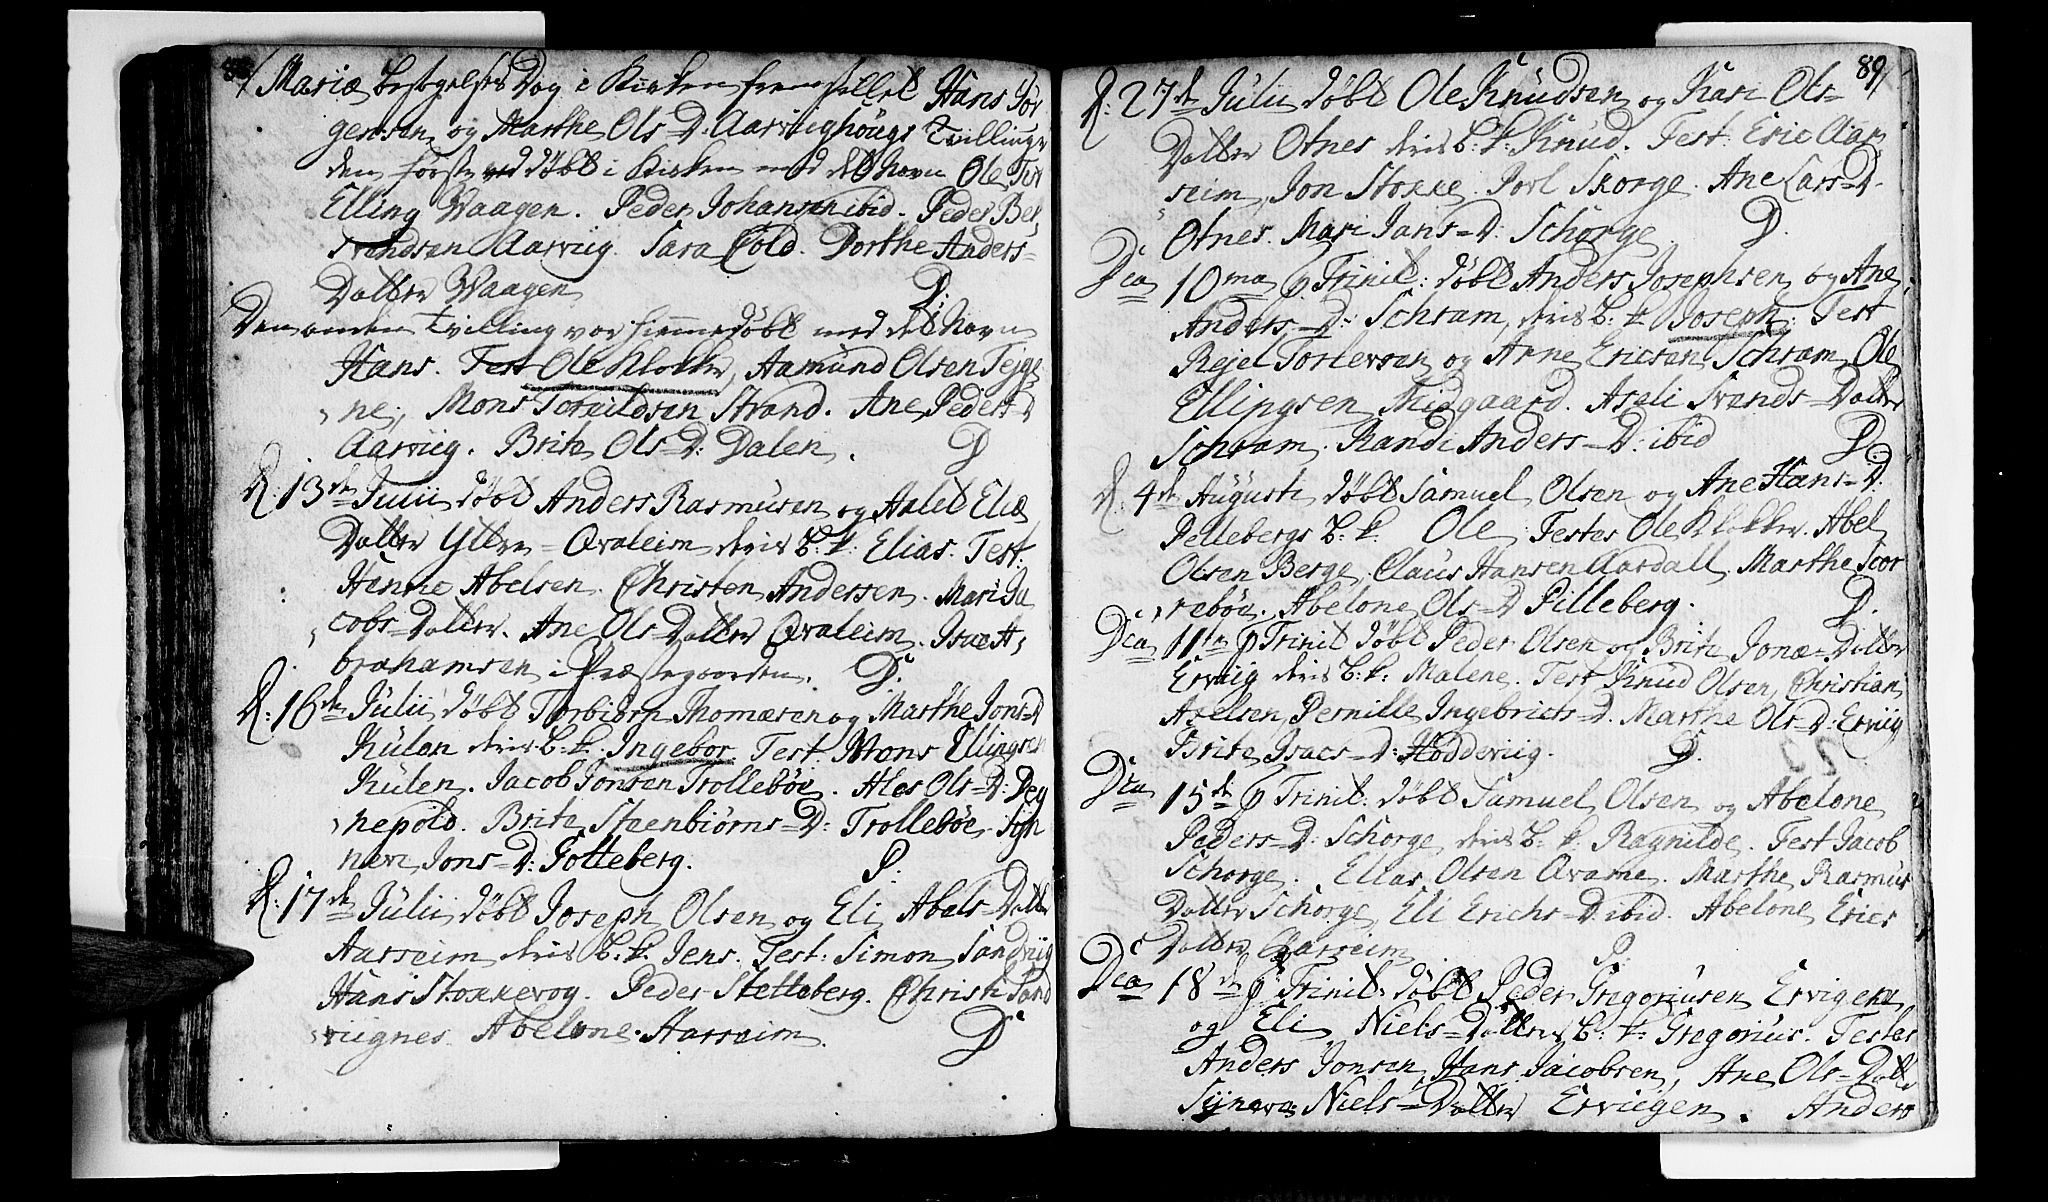 88
Mariæ besøgelses Dag i Kirken fremstillet Hans Jør
gensen og Marthe Ols=D. Aarviighougs Tvillinger
den første døbt i Kirken med det Navn Ole Test
Elling Waagen. Peder Johansen ibid. Peder Ber,
svendsen Aarviig. Sara Cold. Dorthe Anders=
Datter Waagen D.
Den anden tvilling var hiemmedøbt med det Navn
Hans. Test Ole Klokker, Aamund Olsen Tejge
ne, Mons Toraildsen Strand. Ane Peders=D
Aarviig. Brite Ols=D: Dalen. D
D. 13de Julii døbt Anders Rasmusen og Aalet Eliæ
Datter Yttre=Qvaleim deris b: k: Elias. Test:
Henric Abelsen. Christen Andersen. Mari Ja
cobs=Datter. Ane Ols=Datter Qvaleim. Isac A,
brahamsen i Præstegaarden. D.
D. 16de Julii døbt Torbiørn Thomæsen og Marthe Jons=D
Kulen deris b: k: Ingebor. Test. Mons Ellingsen
Kulen. Jacob Jonsen Trollebøe. Ales Ols=D: Deg
nepold. Brite Steenbiørns=D: Trollebøe. Syn
neve Jons=D: Gotteberg. D.
D. 17de Julii døbt Joseph Olsen og Eli Abels=Datter
Aarseim deris b: k. Jens. Test: Simon Sandviig
Hans Stokkevog. Peder Stelleberg. Christi Sand
viignes. Abelone Harreim. D
89
D. 27de Julii døbt Ole Knudsen og Kari Ols=
Datter Otnes deris b: k: Knud. Test: Eric Aar
seim, Jon Stokke. Joel Skorge. Ane Lars=D.
Otnes. Mari Jans=D: Schorge D.
Dca 10ma p Trinit: døbt Anders Josephsen og Ane
Anders=D: Schram, deris b: k Joseph: Test
Rejel Torlevsen og Arne Ericsen Schram, Ole
Ellingsen Nidgaard. Aseli Svends=Datter
Schram. Randi Anders=D: ibid D.
D. 4de Augusti døbt Samuel Olsen og Ane Hans=D.
Pellebergs b: k. Ole. Testes Ole Klokker. Abel
Olsen Berge, Claus Hansen Aardall. Marthe Scor
rebøe. Abelone Ols=D Pilleberg. D.
Dca 11te p Trinit døbt Peder Olsen og Brite Jonæ=Datter
Erviig deris b: k: Malene. Test Knud Olsen, Christian
Axelsen, Pernille Ingebricts=D. Marthe Ols=D: Erviig
Brite Isacs=D: Hoddeviig. D.
Dca 15de p Trinit: døbt Samuel Olsen og Abelone
Peders=D: Schorge deris b: k: Ragnilde. Test Jacob
Schorge. Elias Olsen Qvame. Marthe Rasmus
Datter Schorge, Eli Erichs=D ibid. Abelone Erics
Datter Aarseim. D.
Dca 18de p Trinit: døbt Peder Gregoriusen Ervigen
og Eli Niels=Datters b: k: Gregorius. Testes
Anders Jonsen, Hans Jacobsen, Ane Ols=Datt
Synneve Niels=Datter Erviigen. Anders